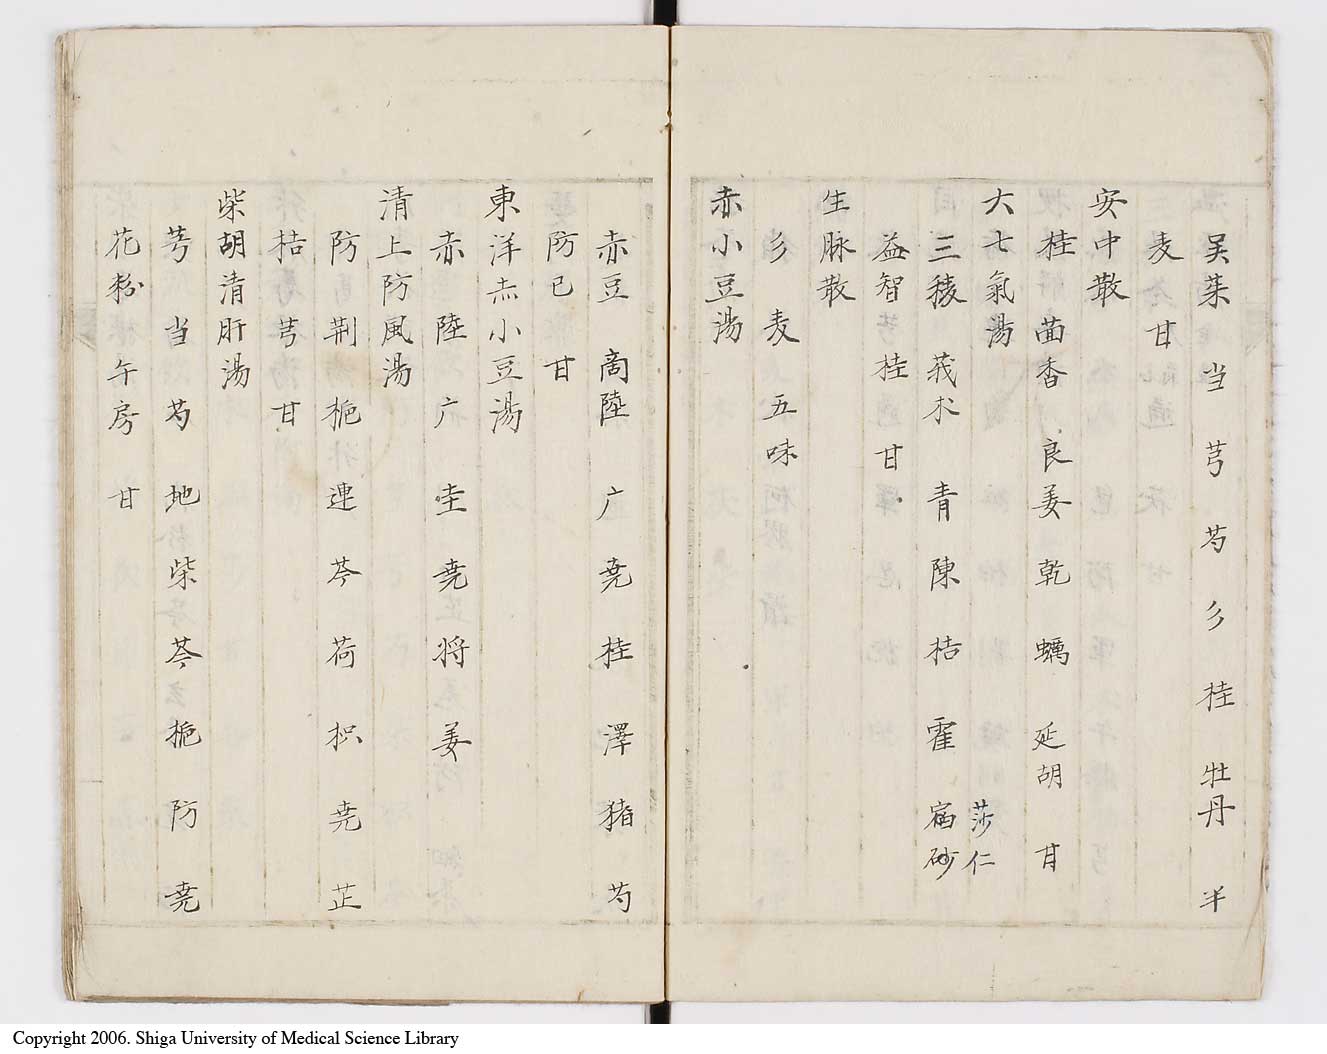 吴茱 当 芎 芍 彡 桂 牡丹 半
麦 甘
安中散
桂 茴香 良姜 乾 蠣 延胡 甘
大七氣湯
三稜 莪朮 青 陳 桔 霍 縮砂
莎仁
益智 桂 甘
生脉散
彡 麦 五味
赤小豆湯
赤豆 商陸 广 尭 桂 澤 猪 芍
防已 甘
東洋赤小豆湯
赤 陸 广 圭 尭 将 姜
清上防風湯
防 荆 梔 連 芩 荷 枳 尭 芷
桔 芎 甘
柴胡清肝湯
芎 当 芍 地 柴 芩 梔 防 尭
花粉 午房 甘
Copyright 2006. Shiga University of Medical Science Library